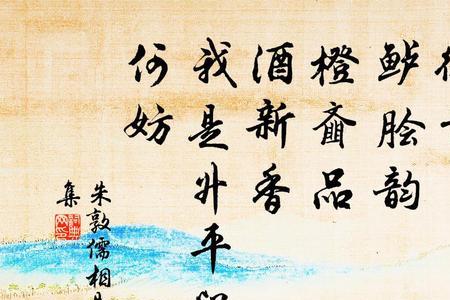 鲈脍韵
橙齑品
酒新香
我是升平
何妨
朱敦儒相
集